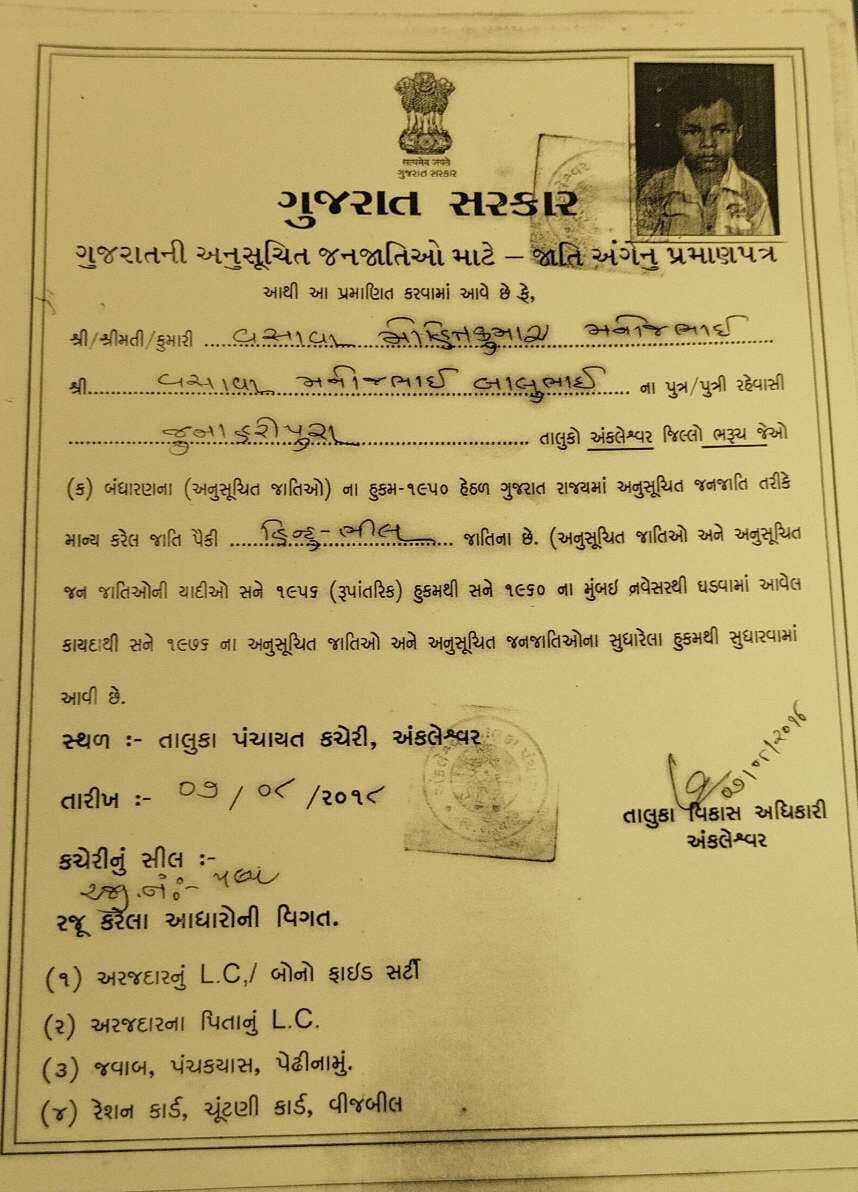 सत्यमेव जयते
ગુજરાત સરકાર
ગુજરાત સરકાર
ગુજરાતની અનુસૂચિત જનજાતિઓ માટે – જાતિ અંગેનુ પ્રમાણપત્ર
આથી આ પ્રમાણિત કરવામાં આવે છે કે,
શ્રી/શ્રીમતી/કુમારી વસાવા મોહિતકુમાર મનોજભાઈ
શ્રી વસાવા મનોજભાઈ બાલુભાઈ ના પુત્ર/પુત્રી રહેવાસી
જુનાહરીપુરા તાલુકો અંકલેશ્વર જિલ્લો ભરૂચ જેઓ
(ક) બંધારણના (અનુસૂચિત જાતિઓ) ના હુકમ-૧૯૫૦ હેઠળ ગુજરાત રાજયમાં અનુસૂચિત જનજાતિ તરીકે
માન્ય કરેલ જાતિ પૈકી હિન્દુ-ભીલ જાતિના છે. (અનુસૂચિત જાતિઓ અને અનુસૂચિત
જન જાતિઓની યાદીઓ સને ૧૯૫૬ (રૂપાંતરિક) હુકમથી સને ૧૯૬૦ ના મુંબઇ નવેસરથી ઘડવામાં આવેલ
કાયદાથી સને ૧૯૭૬ ના અનુસૂચિત જાતિઓ અને અનુસૂચિત જનજાતિઓના સુધારેલા હુકમથી સુધારવામાં
આવી છે.
સ્થળ :- તાલુકા પંચાયત કચેરી, અંકલેશ્વર
તારીખ :- ૦૭ / ૦૮ /૨૦૧૮
તાલુકા વિકાસ અધિકારી
અંકલેશ્વર
કચેરીનું સીલ :-
રજી.નં.:-
રજૂ કરેલા આધારોની વિગત.
(૧) અરજદારનું L.C,/ બોનો ફાઇડ સર્ટી
(૨) અરજદારના પિતાનું L.C.
(૩) જવાબ, પંચકયાસ, પેઢીનામું.
(૪) રેશન કાર્ડ, ચૂંટણી કાર્ડ, વીજબીલ